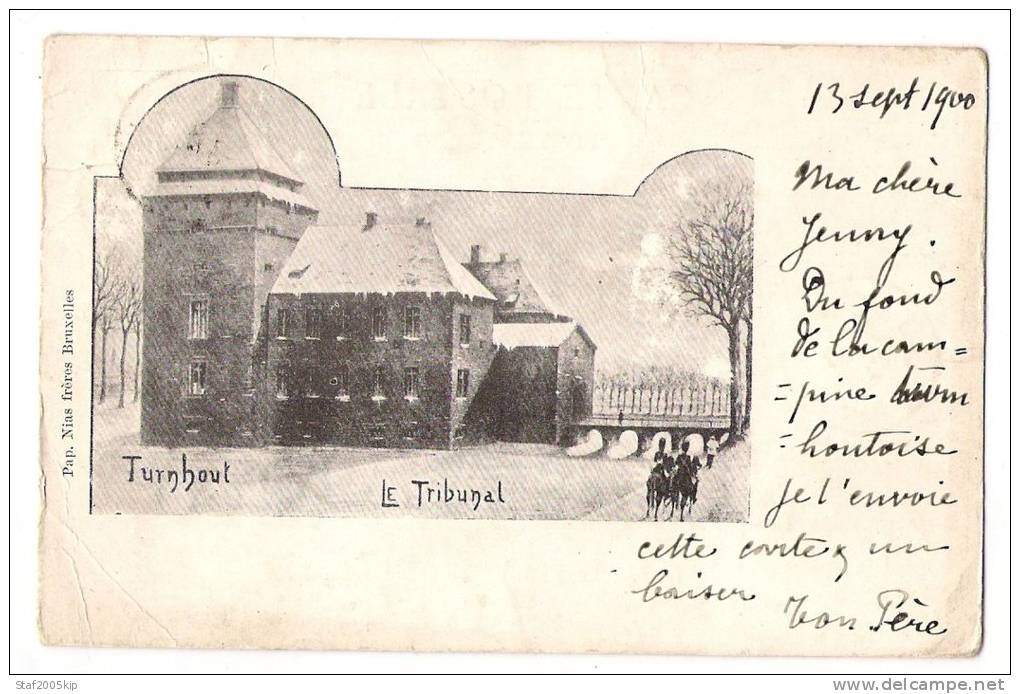 13 sept 1900
Ma chère
Jenny.
Du fond
de la cam=
=pine turn
=houtoise
Je t'envoie
cette carte & un
baiser
Ton Père
Turnhout
LE Tribunal
Pap. Nias frères Bruxelles
Staf2005kip
www.delcampe.net